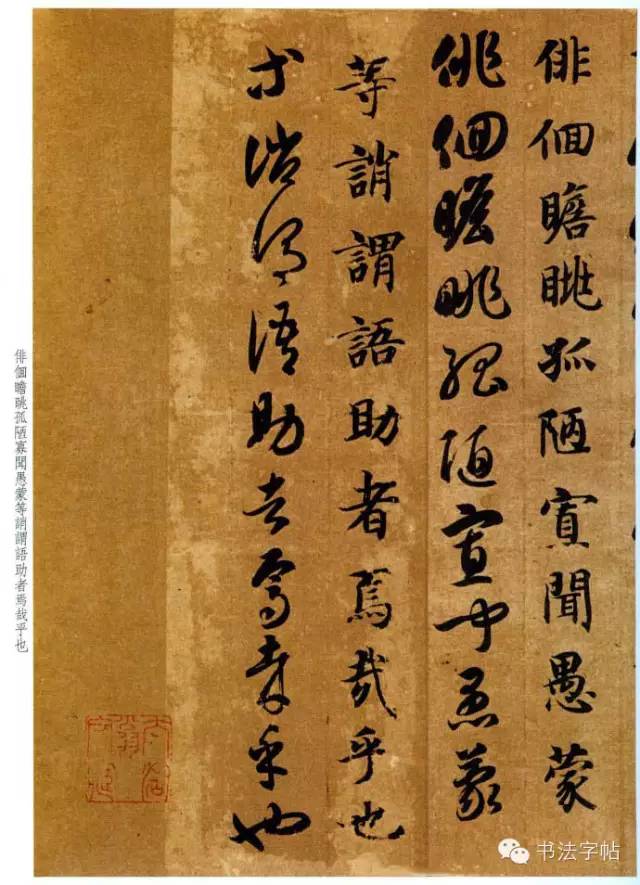 俳佪瞻眺孤陋寡聞愚蒙
俳佪瞻眺孤陋寡聞愚蒙
等誚謂語助者焉哉乎也
等誚謂語助者焉哉乎也
俳佪瞻眺孤陋寡聞愚蒙等誚謂語助者焉哉乎也
书法字帖